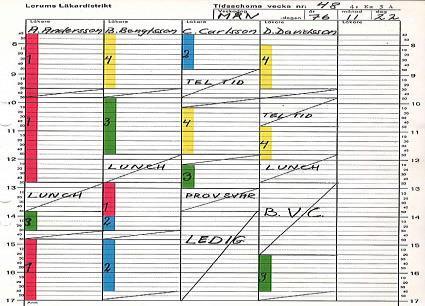 Lorums Läkardistrikt Tidsschema vecka nr: 48
Veckodag år månad dag
MÅN dagen 76 11 22
Läkare Läkare Läkare Läkare Läkare
A. Andersson B. Bengtsson C. Carlsson D. Danielsson
8 4 2 4 8
9 TEL TID 9
10 10
1 3 4 TEL TID
11 4 11
12 LUNCH 3 LUNCH 12
13 LUNCH 1 PROVSVAR 13
14 3 2 B.V.C. 14
15 LEDIG 15
16 1 2 3 16
17 17